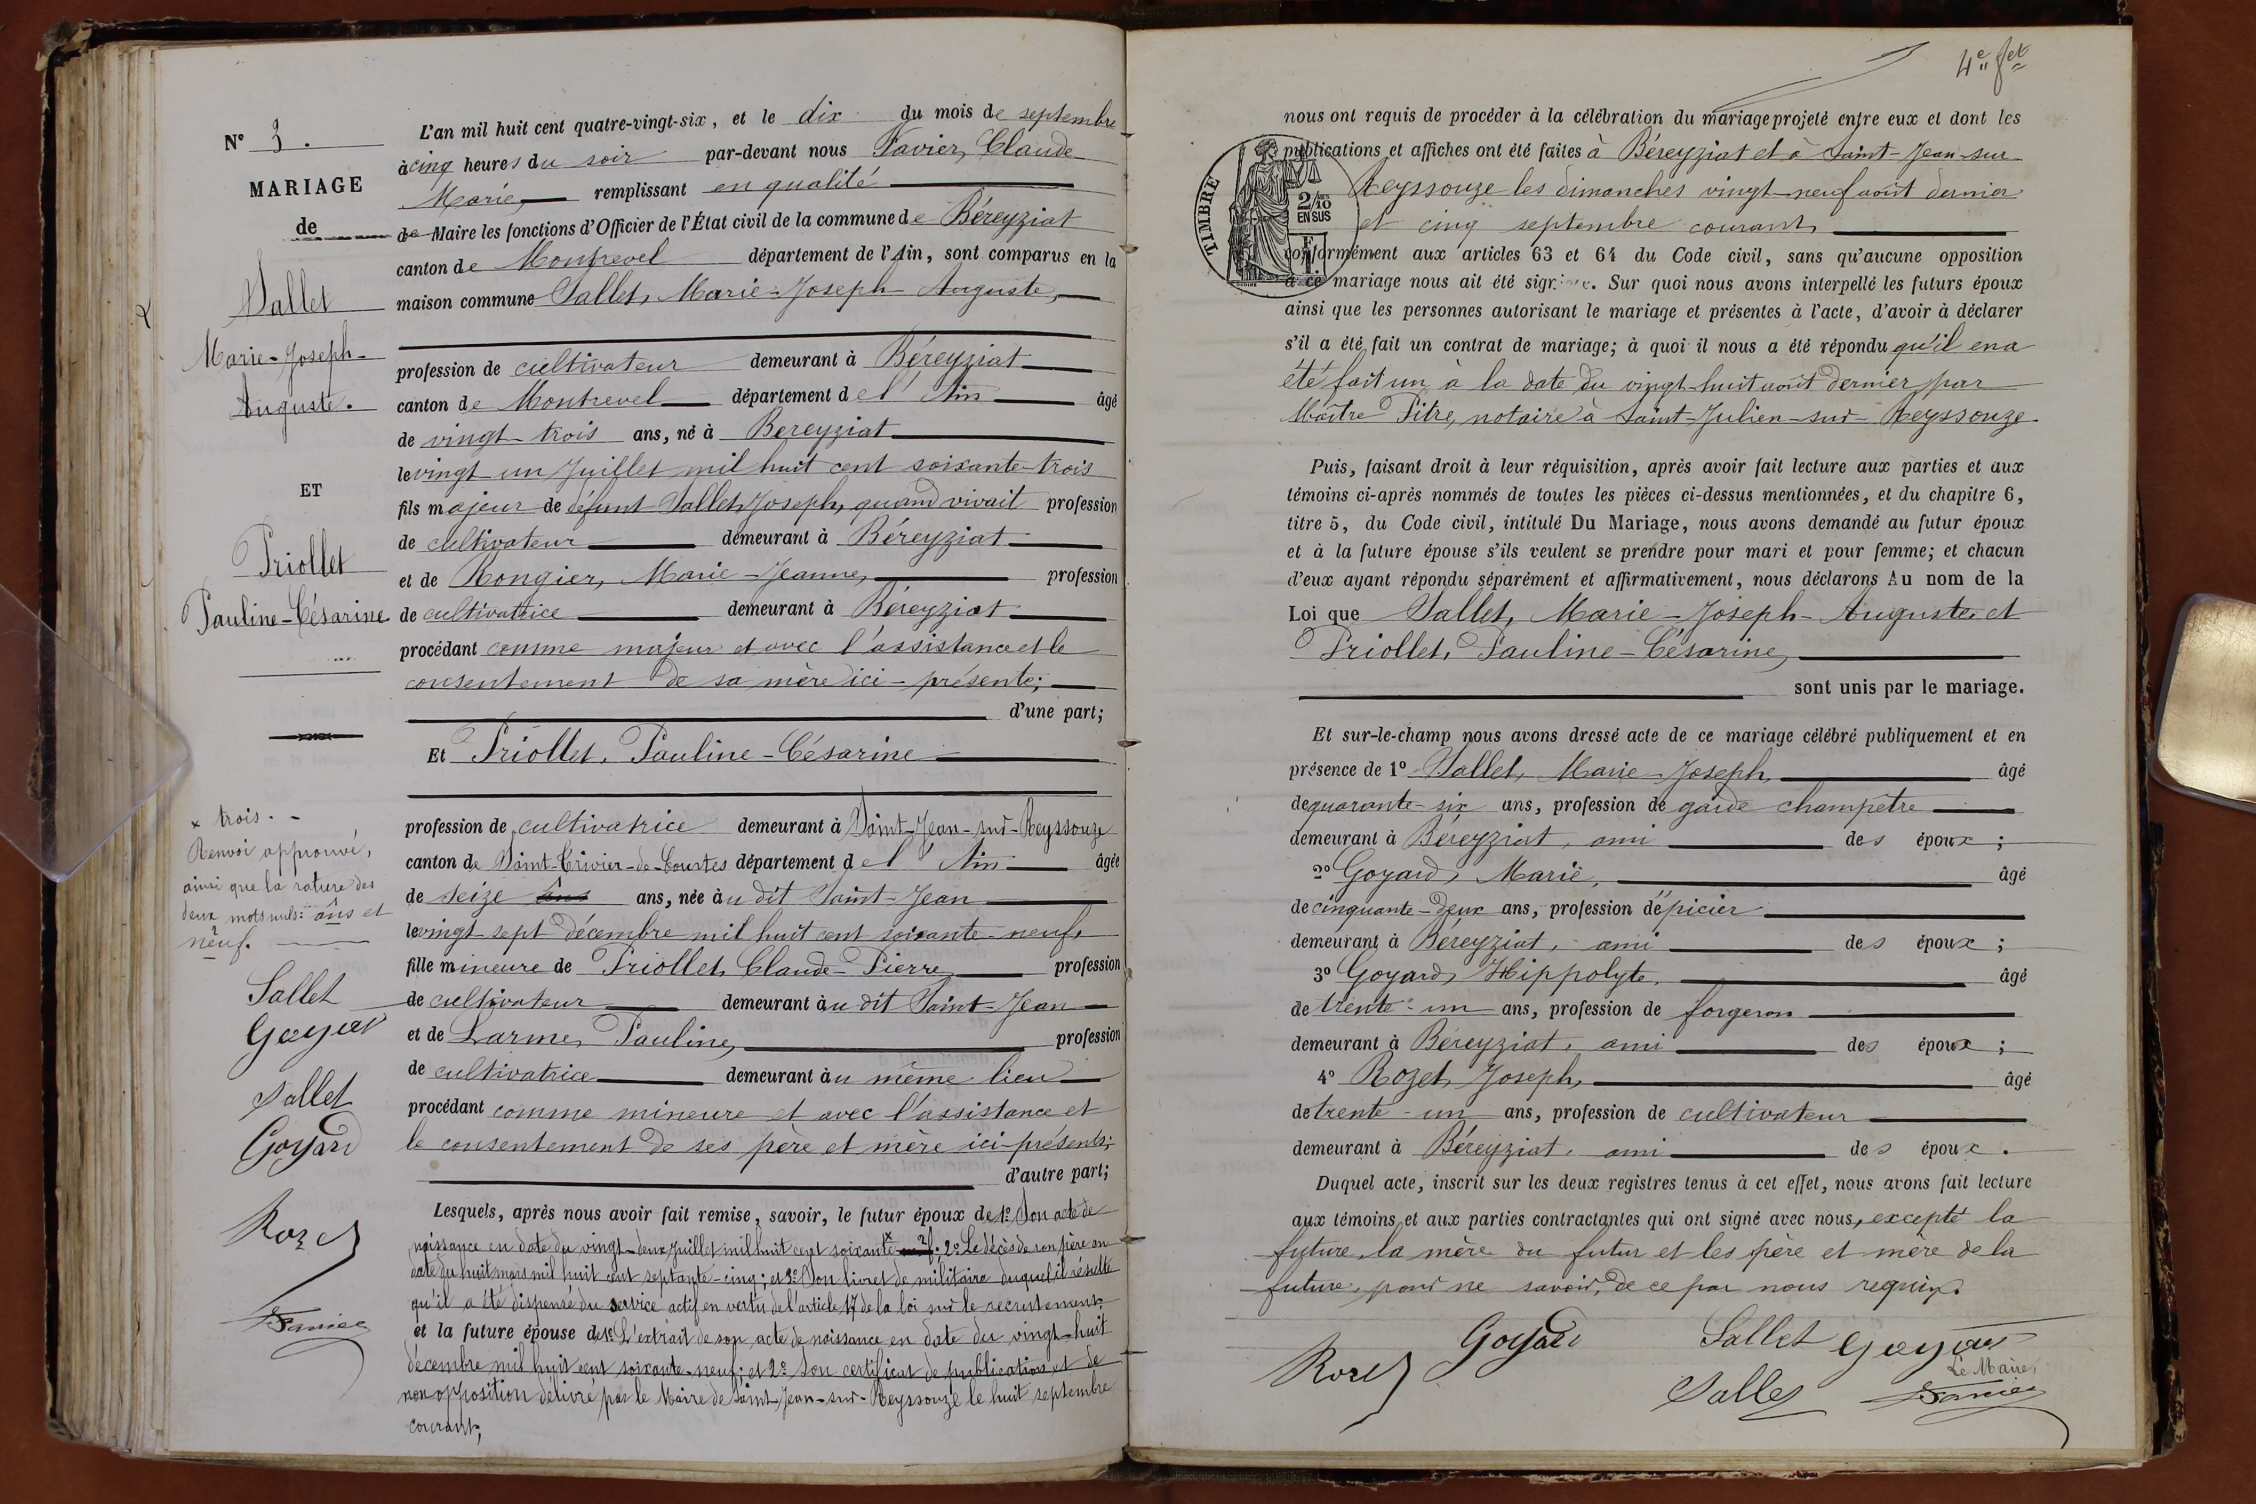 N° 3.
MARIAGE
de
Sallet
Marie-Joseph-
Auguste.
ET
Priollet
Pauline-Césarine
x trois. -
Renvoi approuvé,
ainsi que la rature des
deux mots nuls: ans et
neuf.
Sallet
Goyat
Sallet
Goyard
Rozet
Favier
L'an mil huit cent quatre-vingt-six, et le dix du mois de septembre
à cinq heures du soir par-devant nous Favier, Claude
Marie, remplissant en qualité
de Maire les fonctions d'Officier de l'État civil de la commune de Béreyziat
canton de Montrevel département de l'Ain, sont comparus en la
maison commune Sallet, Marie-Joseph-Auguste,
profession de cultivateur demeurant à Béreyziat
canton de Montrevel département de l'Ain âgé
de vingt-trois ans, né à Bereyziat
le vingt un Juillet mil huit cent soixante-trois
fils majeur de défunt Sallet, Joseph, quand vivait profession
de cultivateur demeurant à Béreyziat
et de Rongier, Marie-Jeanne, profession
de cultivatrice demeurant à Béreyziat
procédant comme majeur et avec l'assistance et le
consentement de sa mère ici-présente;
d'une part;
Et Priollet, Pauline-Césarine
profession de cultivatrice demeurant à Saint-Jean-sur-Reyssouze
canton de Saint-Trivier-de-Courtes département de l'Ain âgée
de seize ans ans, née au dit Saint-Jean
le vingt-sept décembre mil huit cent soixante-neuf,
fille mineure de Priollet, Claude-Pierre, profession
de cultivateur demeurant au dit Saint-Jean
et de Larme, Pauline, profession
de cultivatrice demeurant au même lieu
procédant comme mineure et avec l'assistance et
le consentement de ses père et mère ici-présents;
d'autre part;
Lesquels, après nous avoir fait remise, savoir, le futur époux de 1° Son acte de
naissance en date du vingt-deux Juillet mil huit cent soixante x neuf; 2° Le décès de son père en
date du huit mars mil huit cent septante-cinq; et 3° Son livret de militaire duquel il résulte
qu'il a été dispensé du service actif en vertu de l'article 17 de la loi sur le recrutement;
et la future épouse de 1° L'extrait de son acte de naissance en date du vingt-huit
décembre mil huit cent soixante-neuf; et 2° Son certificat de publication et de
non opposition délivré par le Maire de Saint-Jean-sur-Reyssouze le huit septembre
courant;
4e
nous ont requis de procéder à la célébration du mariage projeté entre eux et dont les
publications et affiches ont été faites à Béreyziat et à Saint-Jean-sur
Reyssouze les dimanches vingt-neuf août dernier
et cinq septembre courant,
TIMBRE
2/10
EN SUS
conformément aux articles 63 et 64 du Code civil, sans qu'aucune opposition
à ce mariage nous ait été signifiée. Sur quoi nous avons interpellé les futurs époux
ainsi que les personnes autorisant le mariage et présentes à l'acte, d'avoir à déclarer
s'il a été fait un contrat de mariage; à quoi il nous a été répondu qu'il en a
été fait un à la date du vingt-huit août dernier par
Maître Pitre, notaire à Saint-Julien-sur-Reyssouze.
Puis, faisant droit à leur réquisition, après avoir fait lecture aux parties et aux
témoins ci-après nommés de toutes les pièces ci-dessus mentionnées, et du chapitre 6,
titre 5, du Code civil, intitulé Du Mariage, nous avons demandé au futur époux
et à la future épouse s'ils veulent se prendre pour mari et pour femme; et chacun
d'eux ayant répondu séparément et affirmativement, nous déclarons Au nom de la
Loi que Sallet, Marie-Joseph-Auguste, et
Priollet, Pauline-Césarine,
sont unis par le mariage.
Et sur-le-champ nous avons dressé acte de ce mariage célébré publiquement et en
présence de 1° Sallet, Marie-Joseph, âgé
de quarante-six ans, profession de garde champêtre
demeurant à Béreyziat, ami des époux;
2° Goyard, Marie, âgé
de cinquante-deux ans, profession d'épicier
demeurant à Béreyziat, ami des époux;
3° Goyard, Hippolyte, âgé
de trente-un ans, profession de forgeron
demeurant à Béreyziat, ami des époux;
4° Rozet, Joseph, âgé
de trente-un ans, profession de cultivateur
demeurant à Béreyziat, ami des époux.
Duquel acte, inscrit sur les deux registres tenus à cet effet, nous avons fait lecture
aux témoins et aux parties contractantes qui ont signé avec nous, excepté la
future, la mère du futur et les père et mère de la
future, pour ne savoir, de ce par nous requis.
Goyard Sallet Goyat
Rozet Le Maire,
Sallet Favier